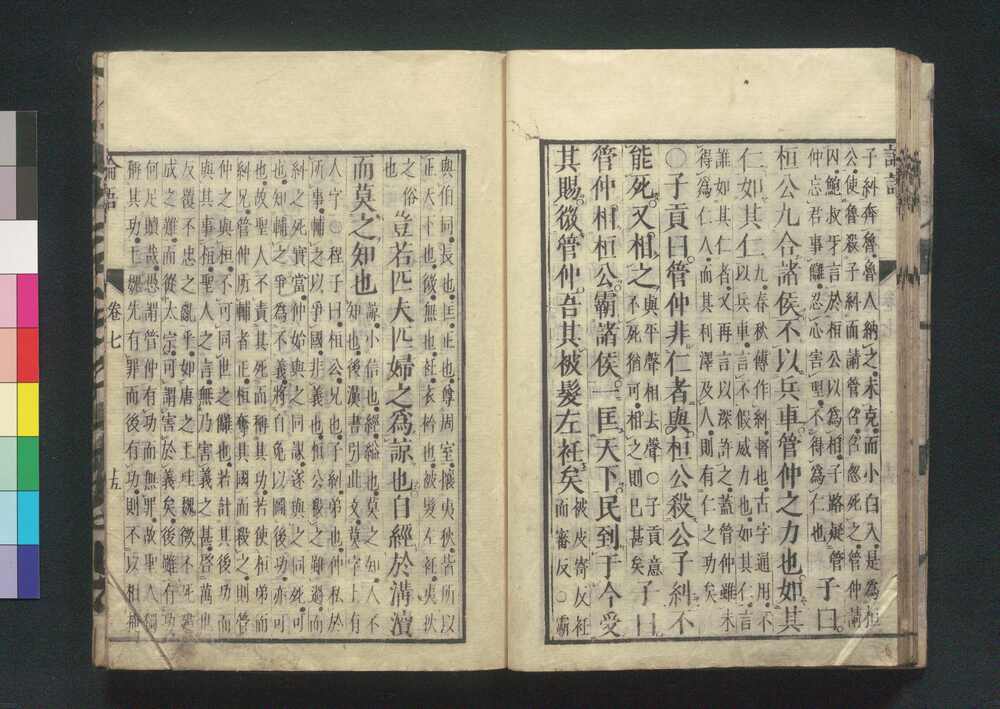 論語
子糾奔魯魯人納之未克而小白入是為桓
公使魯殺子糾而請管召召忽死之管仲請
囚鮑叔牙言於桓公以為相子路疑管
仲忘君事讎忍心害理不得為仁也
子曰
桓公九合諸侯不以兵車管仲之力也如其
仁如其仁
九春秋傳作糾督也古字通用不
以兵車言不假威力也如其仁言
誰如其仁者又再言以深許之蓋管仲雖未
得為仁人而其利澤及人則有仁之功矣
○子貢曰管仲非仁者與桓公殺公子糾不
能死又相之
與平聲相去聲○子貢意
不死猶可相之則已甚矣
子曰
管仲相桓公霸諸侯一匡天下民到于今受
其賜微管仲吾其被髮左衽矣
被皮寄反衽
而審反○霸
與伯同長也匡正也尊周室攘夷狄皆所以
正天下也微無也衽衣衿也被髮左衽夷狄
之俗
也
豈若匹夫匹婦之爲諒也自經於溝瀆
而莫之知也
諒小信也經縊也莫之知人不
知也後漢書引此文莫字上有
人字○程子曰桓公兄也子糾弟也仲私於
所事輔之以爭國非義也桓公殺之雖過而
糾之死實當仲始與之同謀遂與之同死可
也知輔之爭為不義將自免以圖後功亦可
也故聖人不責其死而稱其功若使桓弟而
糾兄管仲所輔者正桓奪其國而殺之則管
仲之與桓不可同世之讎也若計其後功而
與其事桓聖人之言無乃害義之甚啓萬世
反覆不忠之亂乎如唐之王珪魏徵不死建
成之難而從太宗可謂害於義矣後雖有功
何足贖哉愚謂管仲有功而無罪故聖人獨
稱其功王魏先有罪而後有功則不以相掩
論語
卷七
十五